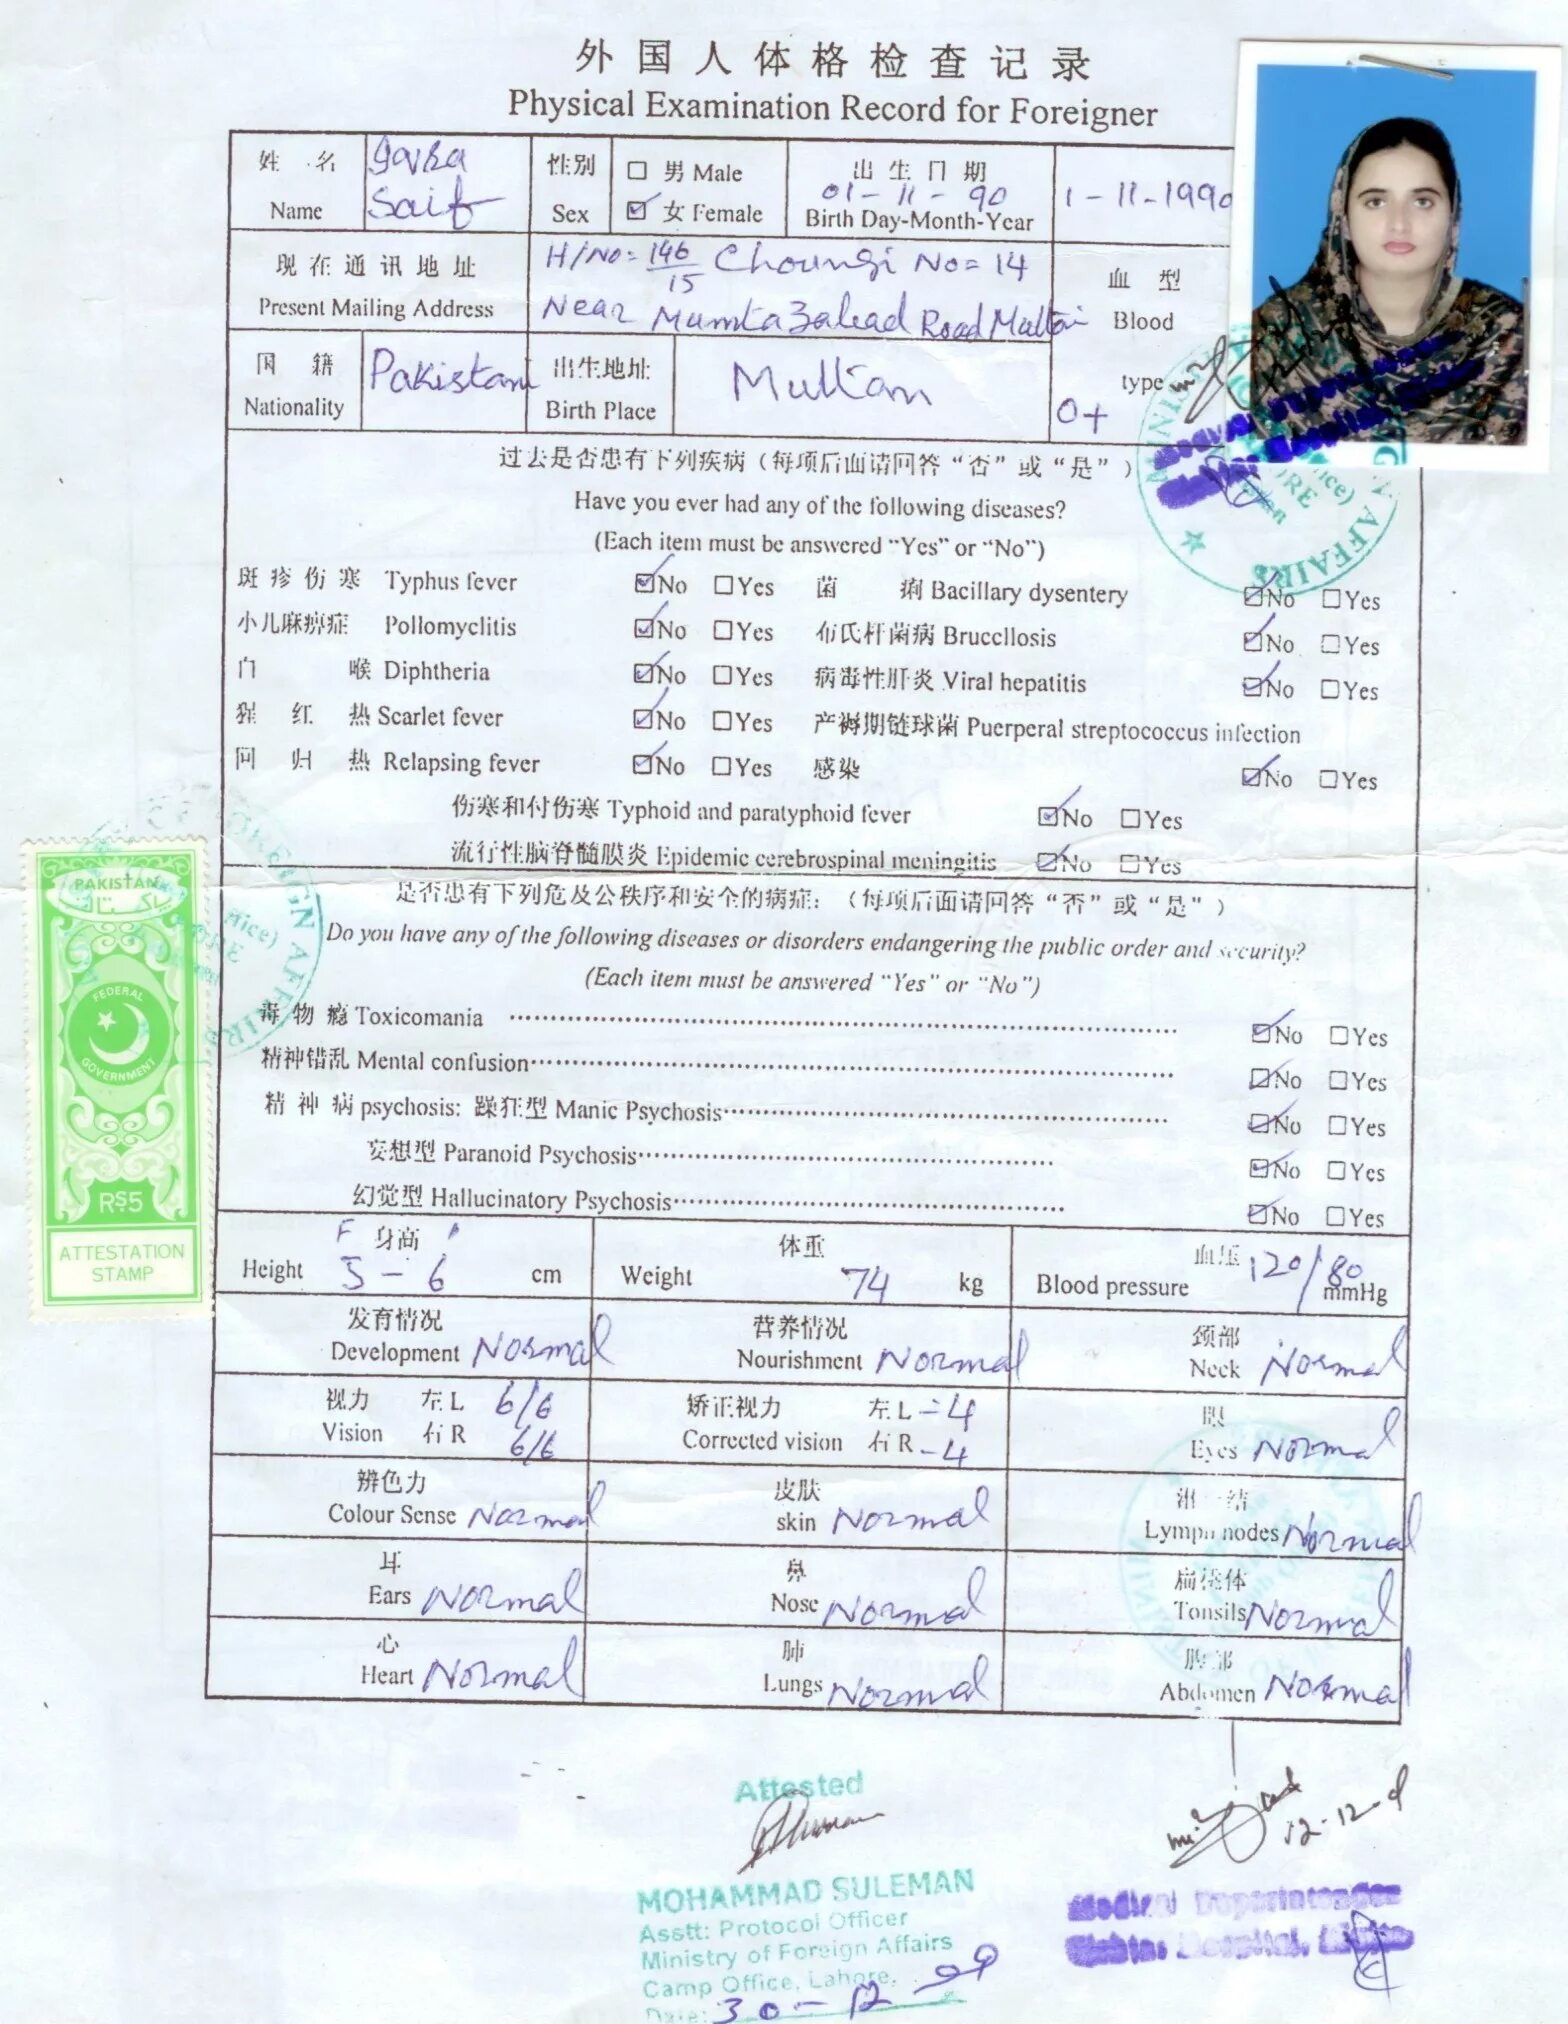 外国人体格检查记录
Physical Examination Record for Foreigner
姓 名 Name Saif
性别 Sex □ 男 Male ☑ 女 Female
出生日期 01-11-90 Birth Day-Month-Year 1-11-1990
现在通讯地址 Present Mailing Address
H/No= 146/15 Choungi No=14
Near Mumtazabad Road Multan
血 型 Blood type O+
国 籍 Nationality Pakistan
出生地址 Birth Place Multan
过去是否患有下列疾病（每项后面请回答“否”或“是”）
Have you ever had any of the following diseases?
(Each item must be answered “Yes” or “No”)
斑疹伤寒 Typhus fever ☑No □Yes 菌 痢 Bacillary dysentery ☑No □Yes
小儿麻痹症 Pollomyclitis ☑No □Yes 布氏杆菌病 Brucellosis ☑No □Yes
喉 Diphtheria ☑No □Yes 病毒性肝炎 Viral hepatitis ☑No □Yes
猩 红 热 Scarlet fever ☑No □Yes 产褥期链球菌 Puerperal streptococcus infection
回 归 热 Relapsing fever ☑No □Yes 感染 ☑No □Yes
伤寒和付伤寒 Typhoid and paratyphoid fever ☑No □Yes
流行性脑脊髓膜炎 Epidemic cerebrospinal meningitis ☑No □Yes
是否患有下列危及公秩序和安全的病症：（每项后面请回答“否”或“是”）
Do you have any of the following diseases or disorders endangering the public order and security?
(Each item must be answered “Yes” or “No”)
毒物瘾 Toxicomania ☑No □Yes
精神错乱 Mental confusion ☑No □Yes
精神病 psychosis: 躁狂型 Manic Psychosis ☑No □Yes
妄想型 Paranoid Psychosis ☑No □Yes
幻觉型 Hallucinatory Psychosis ☑No □Yes
身高 Height F 5-6 cm
体重 Weight 74 kg
血压 Blood pressure 120/80 mmHg
发育情况 Development Normal
营养情况 Nourishment Normal
颈部 Neck Normal
视力 Vision 左 L 6/6 右 R 6/6
矫正视力 Corrected vision 左 L -4 右 R -4
眼 Eyes Normal
辨色力 Colour Sense Normal
皮肤 skin Normal
Lymph nodes Normal
耳 Ears Normal
鼻 Nose Normal
扁桃体 Tonsils Normal
心 Heart Normal
肺 Lungs Normal
腹部 Abdomen Normal
PAKISTAN
پاکستان
FEDERAL
GOVERNMENT
RS5
ATTESTATION
STAMP
FOREIGN AFFAIRS
Attested
MOHAMMAD SULEMAN
Asstt: Protocol Officer
Ministry of Foreign Affairs
Camp Office, Lahore.
Date: 30-12-09
12-12-9